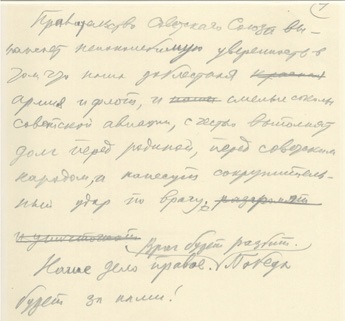 7
Правительство Советского Союза вы-
ражает непоколебимую уверенность в
том, что наша доблестная красная
армия и флот, и наши смелые соколы
советской авиации, с честью выполнят
долг перед родиной, перед советским
народом, и нанесут сокрушитель-
ный удар по врагу.
и уничтожат
Враг будет разбит.
Наше дело правое. Победа
будет за нами!